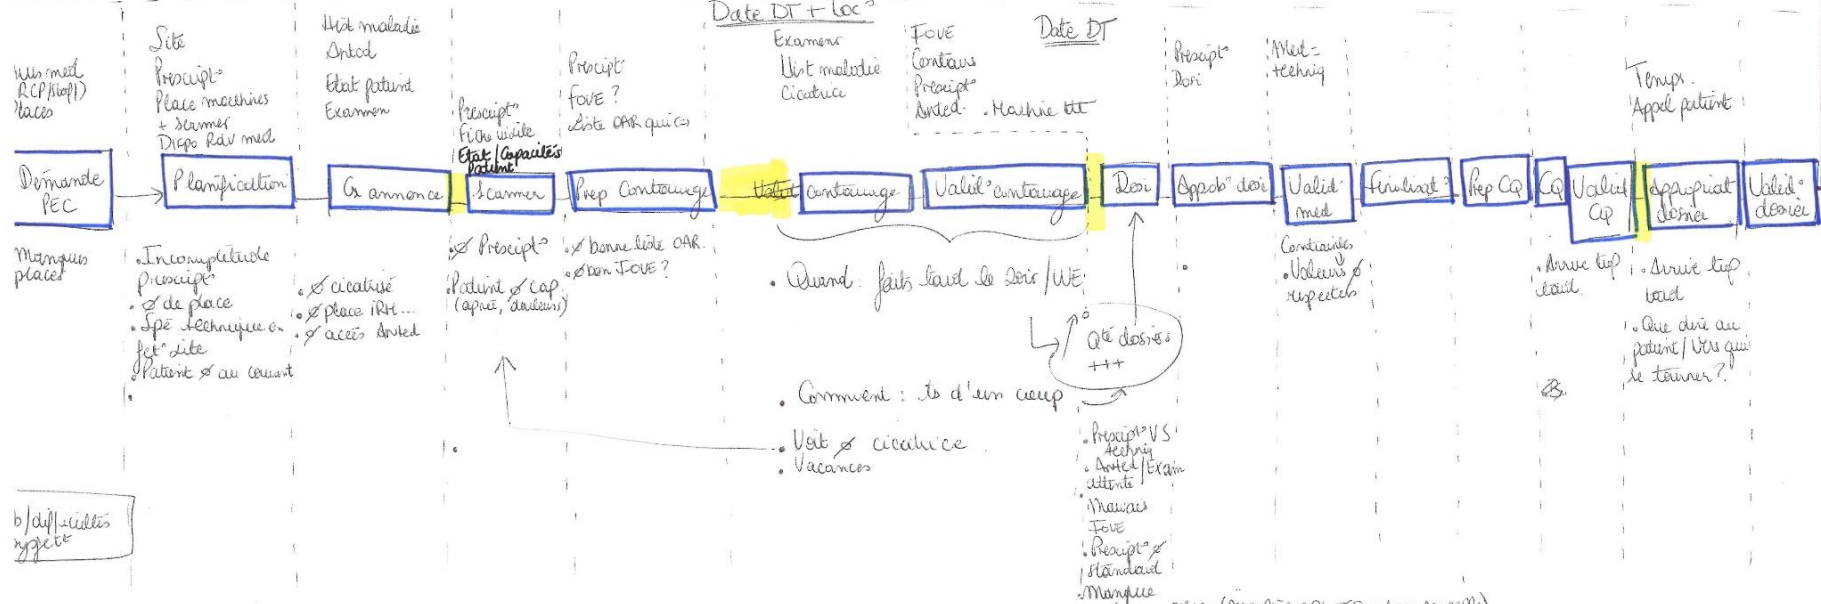 Date DT + Loc°
Date DT
RCP/staff)
Places
Site
Prescipt°
Place machines
+ scanner
Dispo Rdv med
Hist maladie
Antcd
Etat patient
Examen
Prescipt°
Fiche
Etat/Capacités
Patient
Prescipt
FOVE ?
Liste OAR
Examens
Hist maladie
Cicatrice
FOVE
Contours
Prescipt°
Anted. . Machine
Prescipt°
Dosi
Med =
techniq
Temps.
Appel patient
Demande
PEC
Planification
Cs annonce
Scanner
Prep Contourage
contourage
Valid° contourage
Dosi
Approb° dosi
Valid°
med
Finalisat°
Prep CQ
CQ
Valid
CQ
Appropriat°
dosier
Valid°
dosier
Manques
places
. Incomplétude
prescipt°
. Ø de place
. Spé technique en
fct° site
. Patient Ø au courant
. Ø cicatrisé
. Ø place IRM...
. Ø accès Anted
. Ø Prescipt°
. Patient Ø cap.
. Ø bonne liste OAR.
. Ø bon FOVE ?
. Quand : faits tard le soir/WE
Qté dosiers
+++
. Comment : ts d'un coup
. Voit Ø cicatrice
. Vacances
Contraintes
. Valeurs Ø
respectées
. Arrive trop
tard
. Arrive trop
tard
. Que dire au
patient/Vers qui
se tourner ?
. Prescipt° VS
techniq
. Anted/Exam
attente
. Mauvais
FOVE
. Prescipt° Ø
standard
. Manque
b/difficultés